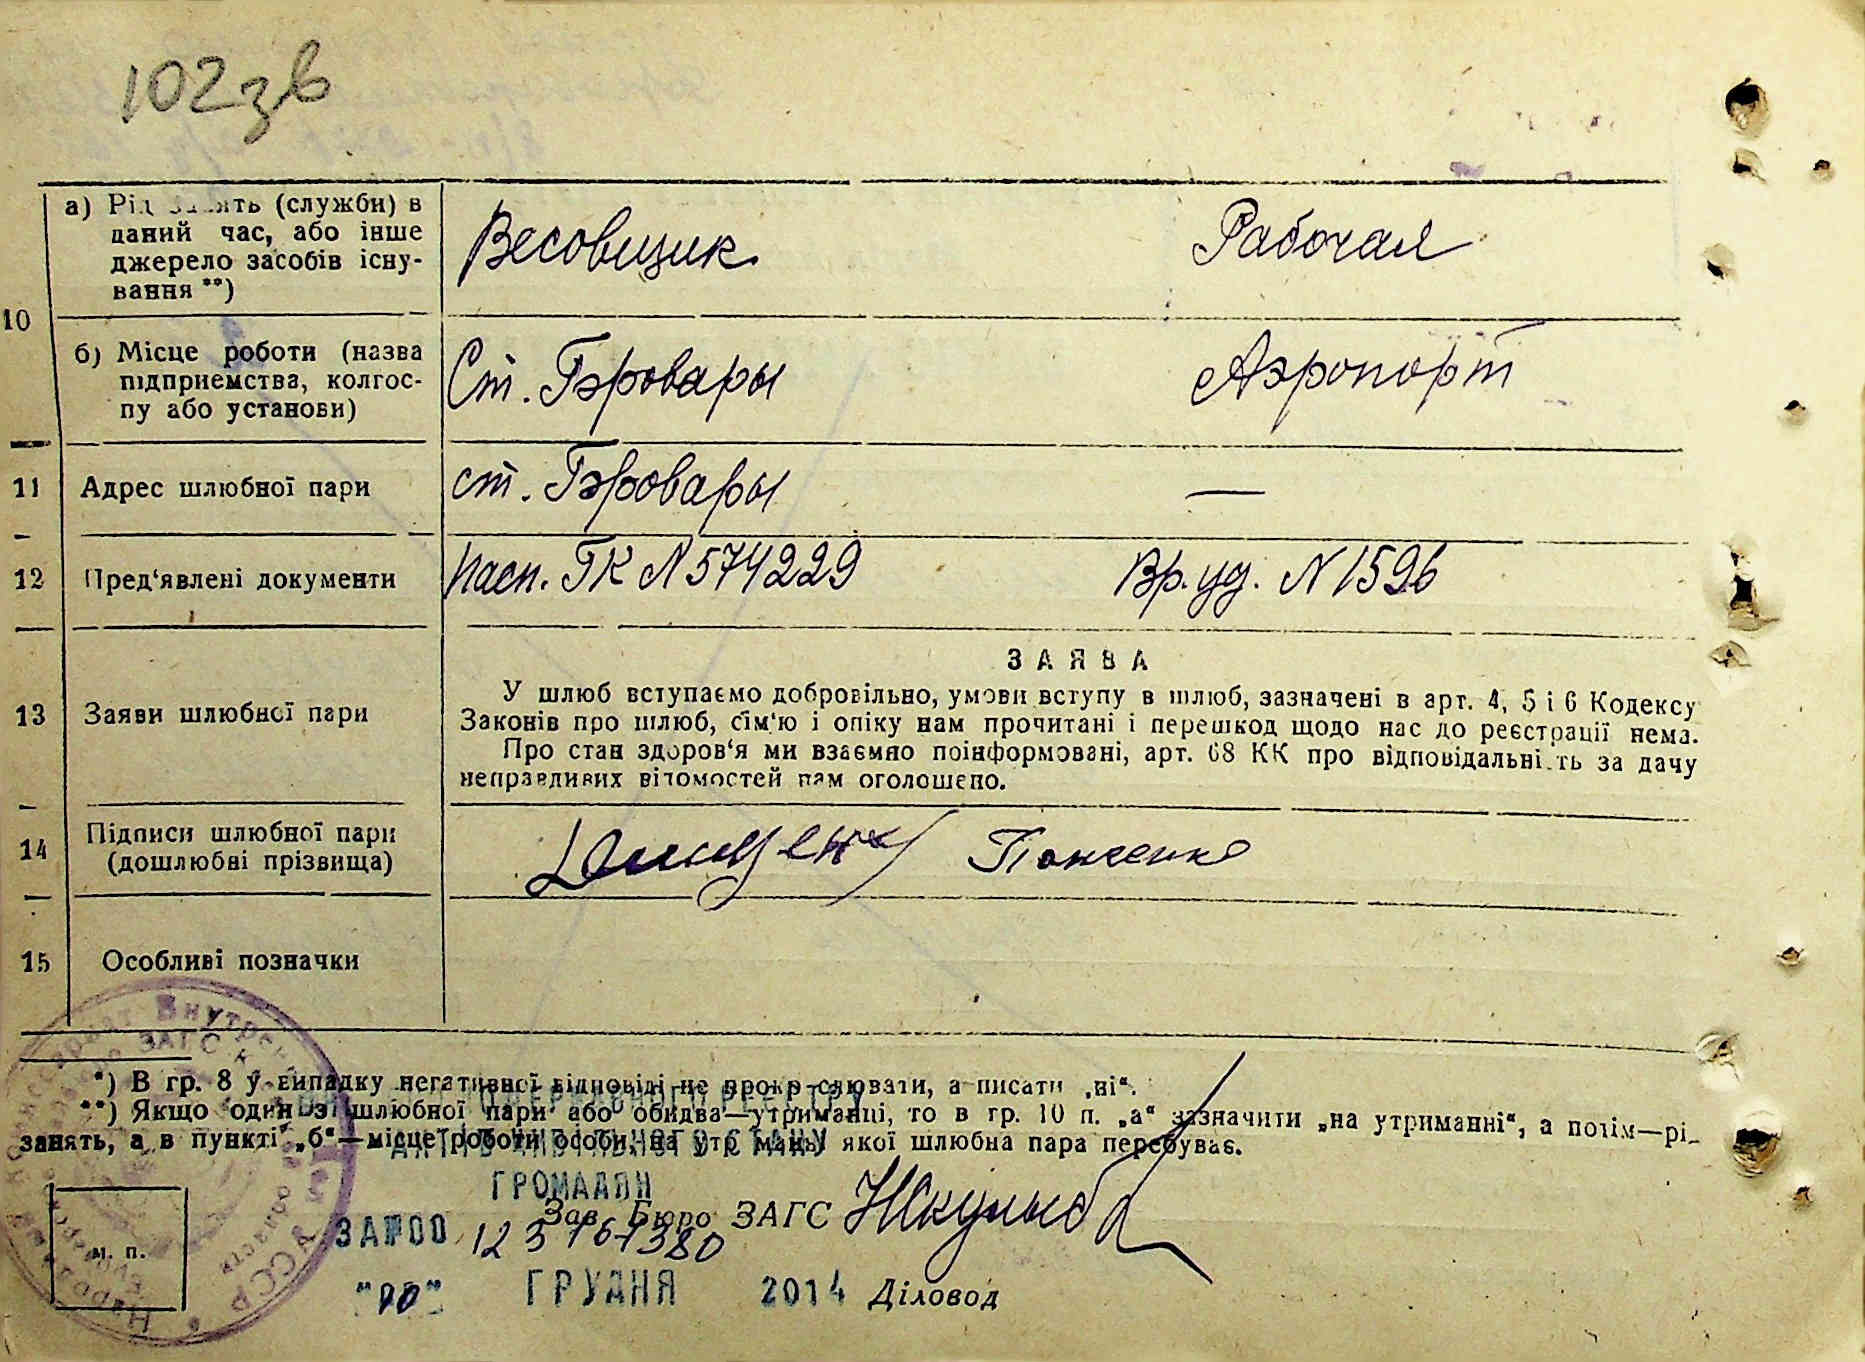 102 зв
а) Рід занять (служби) в
даний час, або інше
джерело засобів існу-
вання **)
Весовщик
Рабочая
10
б) Місце роботи (назва
підприємства, колгос-
пу або установи)
Ст. Бровары
Аэропорт
11 Адрес шлюбної пари
ст. Бровары
—
12 Пред'явлені документи
Пасп. ГК N 574229
Вр. уд. N 1596
13 Заяви шлюбної пари
ЗАЯВА
У шлюб вступаємо добровільно, умови вступу в шлюб, зазначені в арт. 4, 5 і 6 Кодексу
Законів про шлюб, сім'ю і опіку нам прочитані і перешкод щодо нас до реєстрації нема.
Про стан здоров'я ми взаємно поінформовані, арт. 68 КК про відповідальність за дачу
неправдивих відомостей нам оголошено.
14 Підписи шлюбної пари
(дошлюбні прізвища)
Панченко
15 Особливі позначки
*) В гр. 8 у випадку негативної відповіді не прокреслювати, а писати „ні“.
**) Якщо один з шлюбної пари або обидва—утриманці, то в гр. 10 п. „а“ зазначити „на утриманні“, а потім—рід
занять, а в пункті „б“—місце роботи особи, на утриманні якої шлюбна пара перебуває.
ДЕРЖАВНОГО РЕЄСТРУ
АКТІВ ЦИВІЛЬНОГО СТАНУ
ГРОМАДЯН
Зав. Бюро ЗАГС
м. п.
ГРУДНЯ 2014
Діловод
Внутрен
ЗАГС
области
УССР